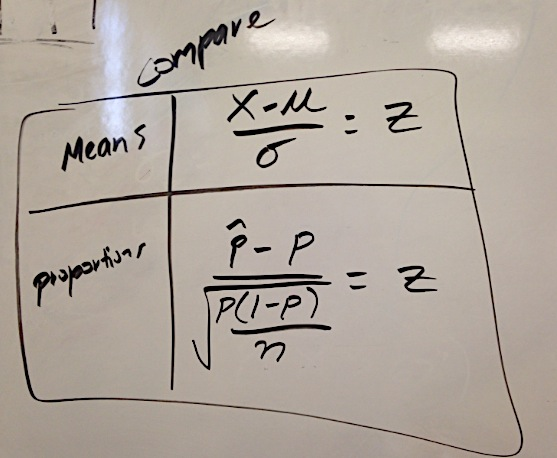 compare
Means
X-μ/σ = Z
proportions
p̂ - p/√(p(1-p)/n) = Z